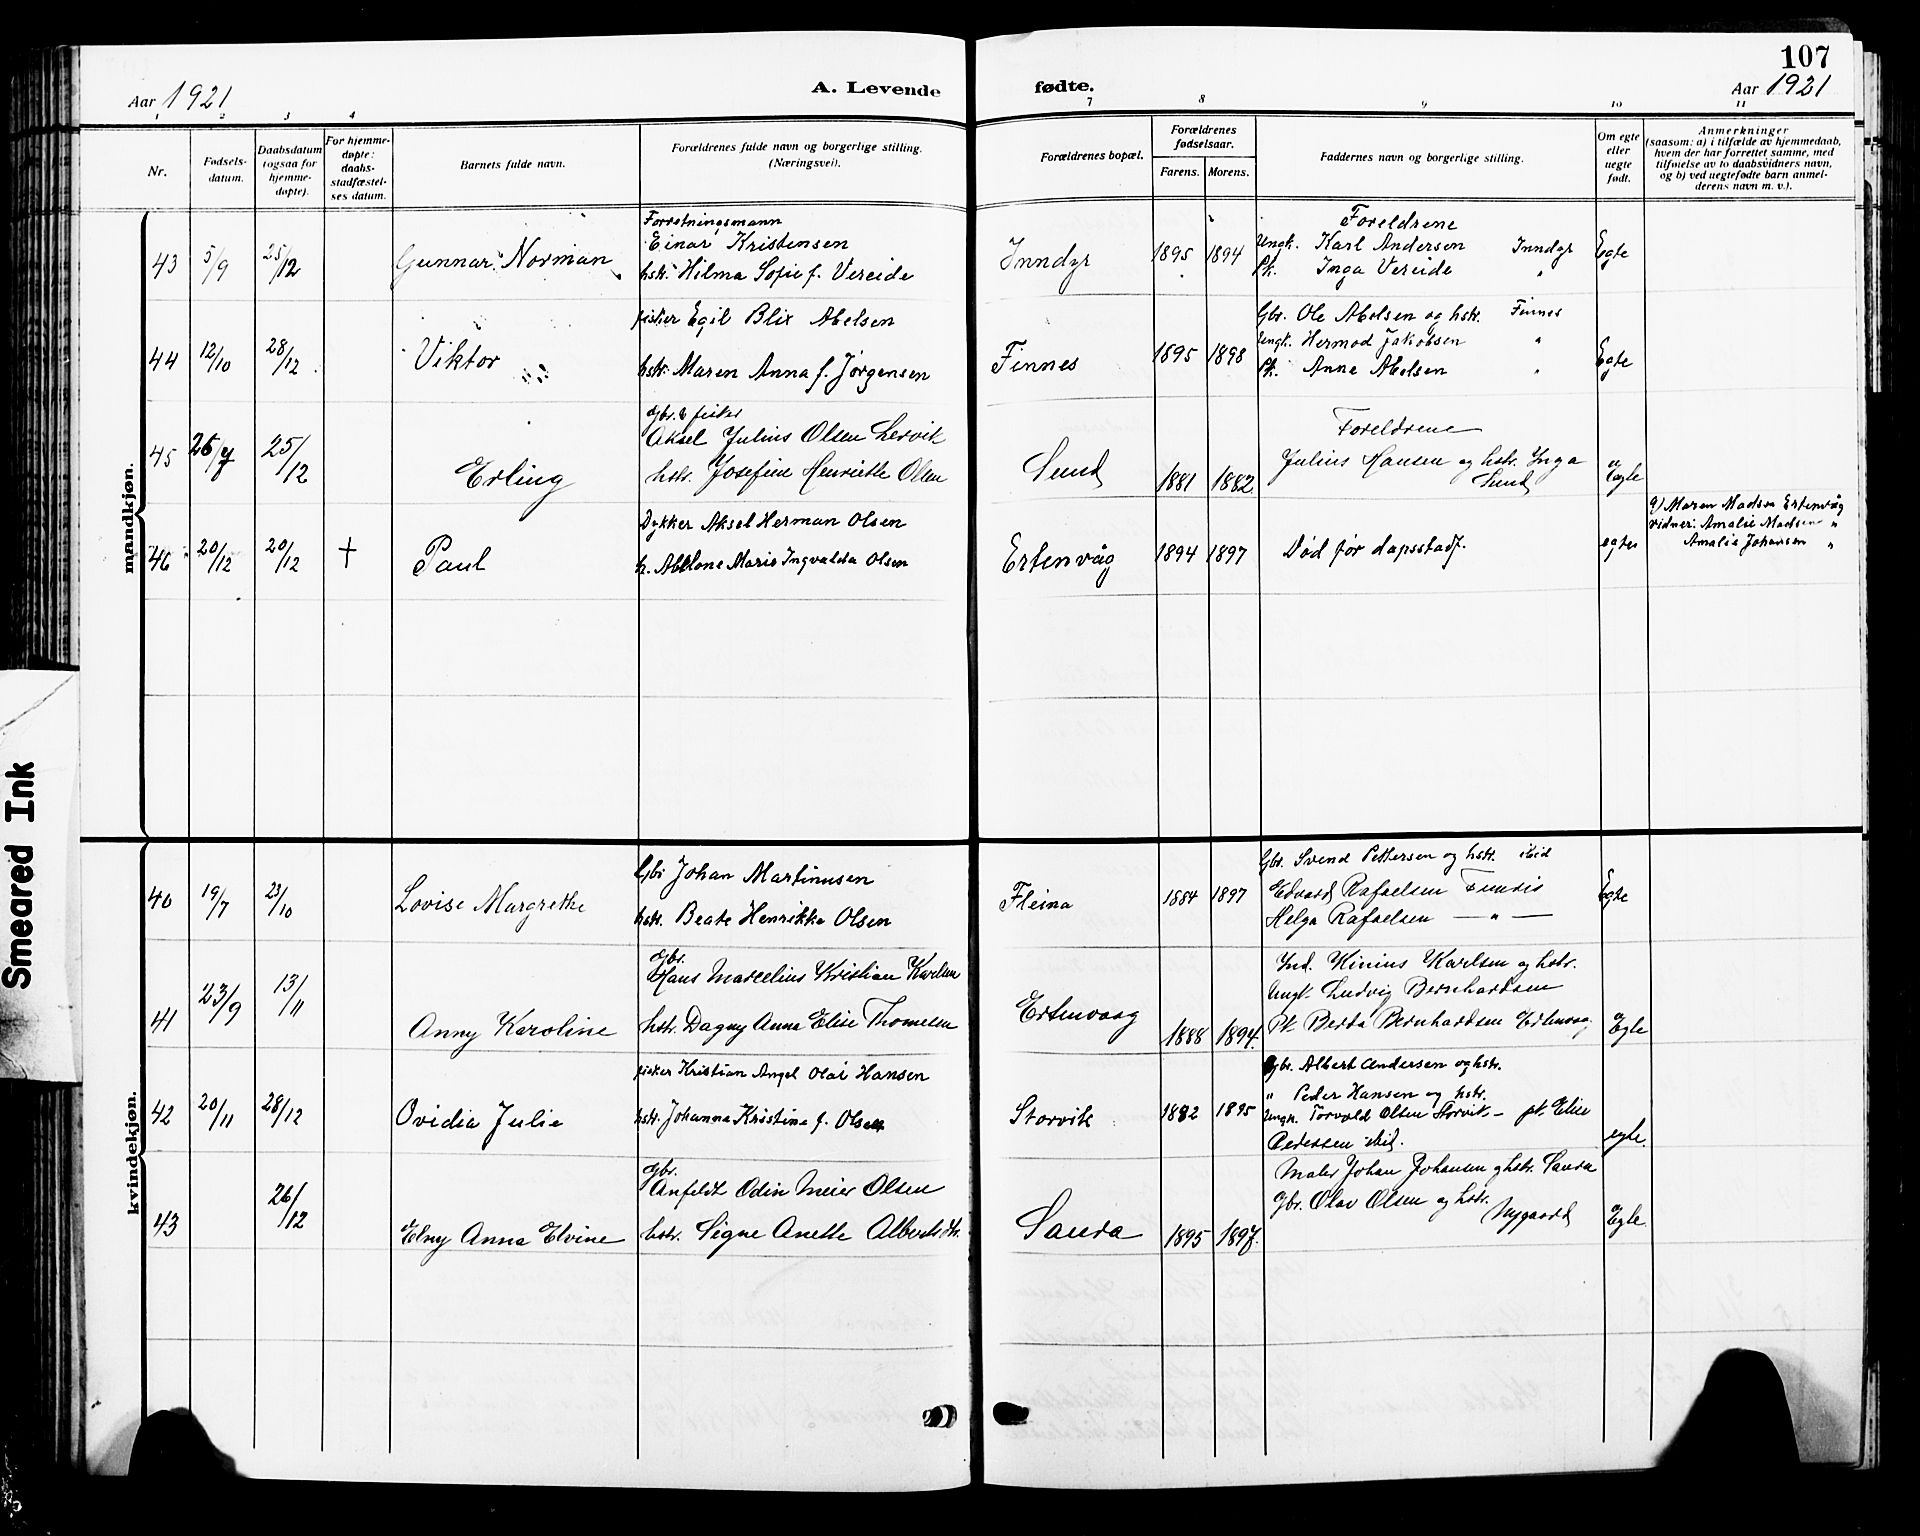 107
Aar 1921
A. Levende
fødte.
Aar 1921
1 2 3 4 7 8 9 10 11
Nr.
Fødsels-
datum.
Daabsdatum
(ogsaa for
hjemme-
døpte).
For hjemme-
døpte:
daabs-
stadfæstel-
ses datum.
Barnets fulde navn.
Forældrenes fulde navn og borgerlige stilling.
(Næringsvei).
Forældrenes bopæl.
Forældrenes
fødselsaar.
Farens. Morens.
Faddernes navn og borgerlige stilling.
Om egte
eller
uegte
født.
Anmerkninger
(saasom: a) i tilfælde av hjemmedaab,
hvem der har forrettet samme, med
tilføielse av to daabsvidners navn,
og b) ved uegtefødte barn anmel-
derens navn m. v.).
mandkjøn.
43 5/9 25/12 Gunnar Norman
Forretningsmann
Einar Kristensen
hstr. Hilma Sofie f. Vereide
Inndyr 1895 1894
Foreldrene
Ungk. Karl Andersen Inndyr
Pk. Inga Vereide "
Egte
44 12/10 28/12 Viktor
fisker Egil Blix Abelsen
hstr. Maren Anna f. Jørgensen
Finnes 1895 1898
Gbr. Ole Abelsen og hstr. Finnes
Ungk. Hermod Jakobsen "
Pk. Anna Abelsen "
Egte
45 26/ 25/12 Erling
Gbr. & fisker
Aksel Julius Olsen Lervik
hstr. Josefine Henriette Olsen
Sund 1881 1882
Foreldrene
Julius Hansen og hstr. Inga
Sund
Egte
46 20/12 20/12 † Paul
Dykker Aksel Herman Olsen
h. Abelone Marie Ingvalda Olsen
Ertenvåg 1894 1897
Død før dapsstadf.
egte
a) Maren Madsen Ertenvåg
vidner: Amalie Madsen "
Amalie Johansen "
kvindekjøn.
40 19/7 23/10 Lovise Margrethe
Gbr Johan Martinusen
hstr. Beate Henrikke Olsen
Fleina 1884 1897
Gbr. Svend Pettersen og hstr. ibid
Edvard Rafaelsen
Helga Rafaelsen — " —
Egte
41 23/9 13/11 Anny Karoline
Gbr.
Hans Marcelius Kristian Karlsen
hstr. Dagny Anna Elise Thomesen
Ertenvaag 1888 1894.
Ind. Karlsen og hstr.
Ungk. Ludvig Bernhardsen
Pk. Berda Bernhardsen Ertenvaag
Egte
42 20/11 28/12 Ovidia Julie
fisker Kristian Angel Olai Hansen
hstr. Johanna Kristine f. Olsen
Storvik 1882 1895
Gbr. Albert Andersen og hstr.
" Peder Hansen og hstr.
Ungk. Torvald Olsen Storvik — pk. Elise
Pedersen ibid.
egte.
43 26/12 Elny Anna Elvine
Gbr.
Anfeldt Odin Meier Olsen
hstr. Signe Anette Albertsdtr.
Saura 1895 1897.
Maler Johan Johansen og hstr. Saura
Gbr. Olav Olsen og hstr.
Nygaard
Egte
Smeared Ink